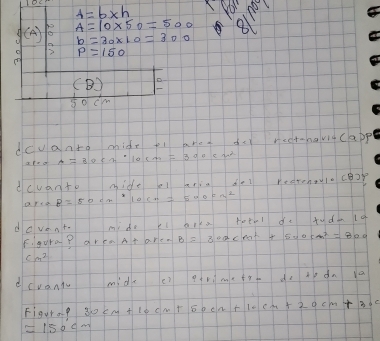 A = b x h
(A)
A = 10 x 50 = 500
b = 30 x 10 = 300
P = 150
(B)
50 cm
¿Cuanto mide el area del rectangulo (a)?
area A = 30 cm * 10 cm = 300 cm²
¿Cuanto mide el area del rectangulo (B)?
area B = 50 cm * 10 cm = 500 cm²
¿Cuant. mide el area total de toda la
figura? area A + area B = 300 cm² + 500 cm² = 800
cm²
¿Cuanto mide el perimetro de toda la
Figura? 30 cm + 10 cm + 50 cm + 10 cm + 20 cm + 3
= 150 cm